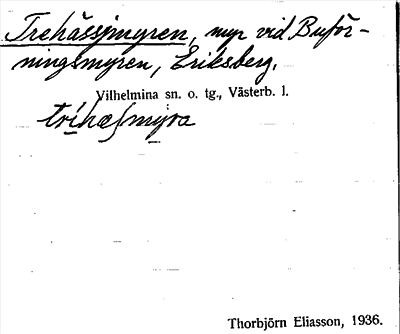 Trehässjmyren, myr vid Buför-
ningsmyren, Eriksberg.
Vilhelmina sn. o. tg., Västerb. l.
tríhæʃmyra
Thorbjörn Eliasson, 1936.